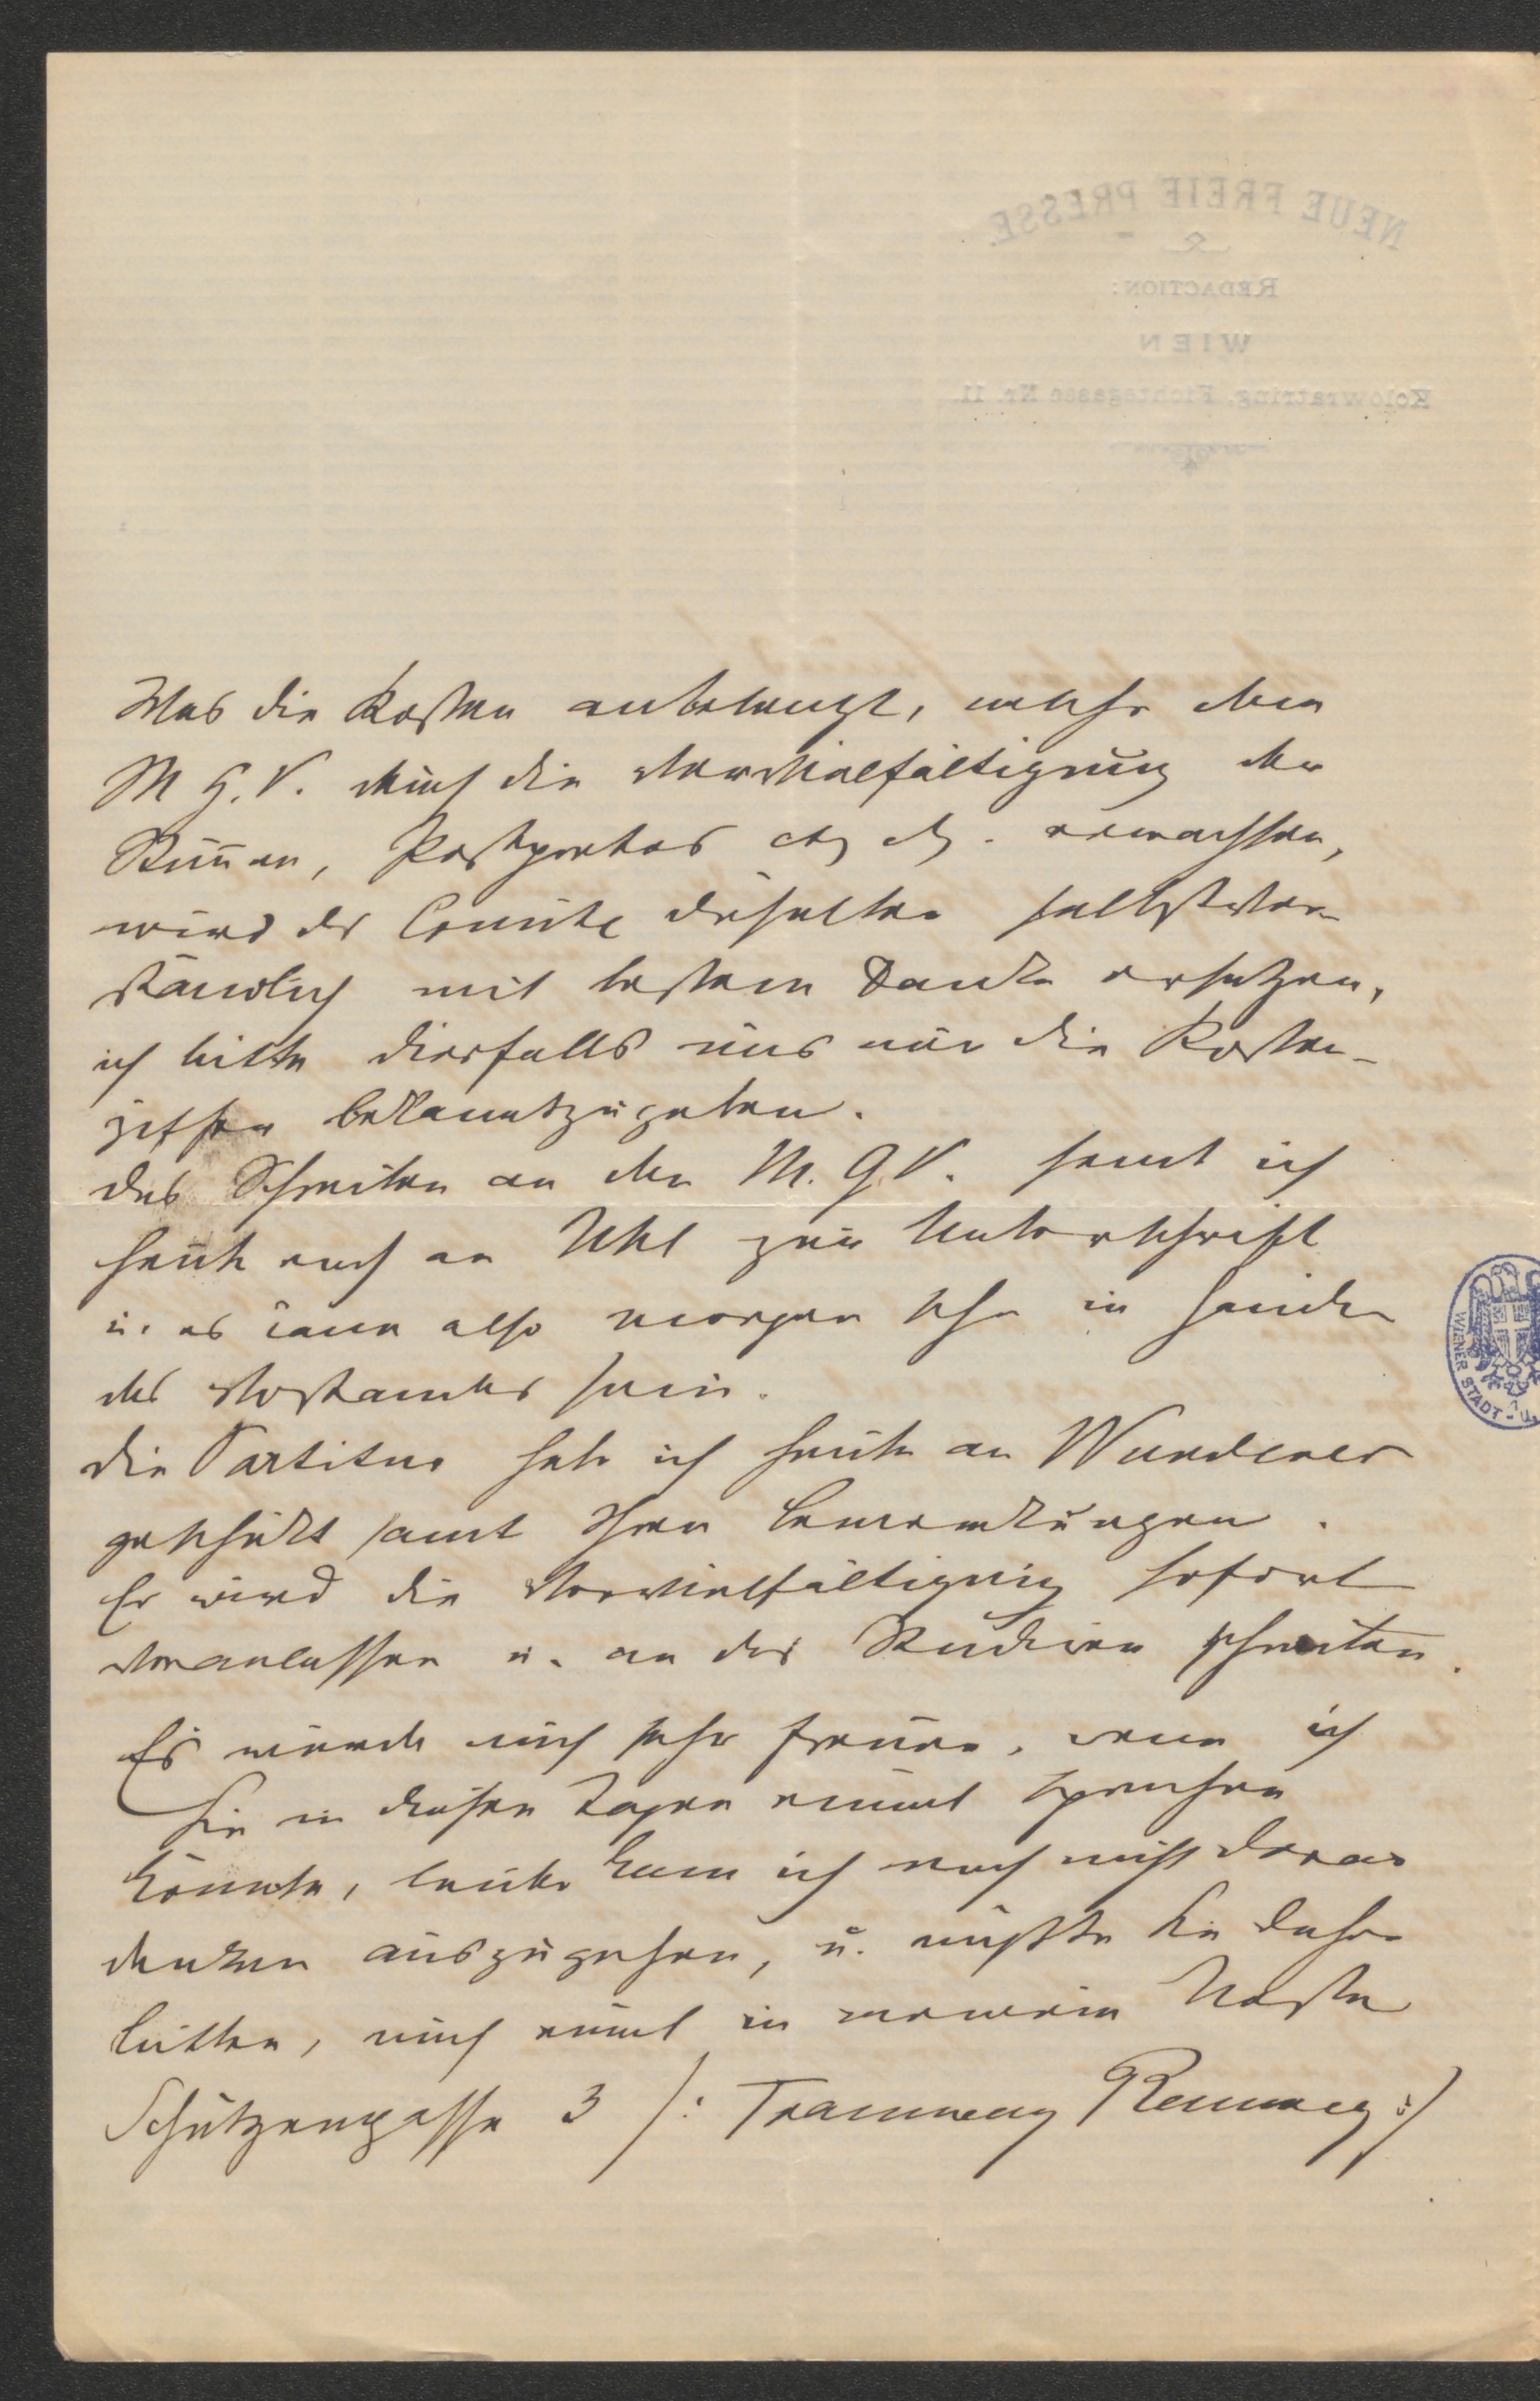 NEUE FREIE PRESSE
REDACTION:
WIEN
Kolowratring, Fichtegasse Nr. 11.
Was die Kosten anbelangt, welche dem
M G. V. durch die Vervielfältigung der
Stim̅en, Postportos etz etz. erwachsen,
wird das Comité dieselben selbstver-
ständlich mit bestem Danke ersetzen,
ich bitte diesfalls uns nur die Kosten-
ziffer bekanntzugeben.
Das Schreiben an den M. G. V. sandt ich
heute auch an Uhl zur Unterschrift
u. es kann also morgen schon in Händen
des Vorstandes sein.
Die Partitur habe ich heute an Wunderer
geschickt samt Ihren Bemerkungen.
Er wird die Vervielfältigung sofort
veranlassen u. an das Studieren schreiten.
Es würde mich sehr freuen, wenn ich
Sie in diesen Tagen einmal sprechen
könnte, leider kann ich noch nicht daran
denken auszugehen, u. müßte Sie daher
bitten, mich einmal in meinem Neste
Schützengasse 3 /: Tramway Rennweg :/
WIENER STADT- U.